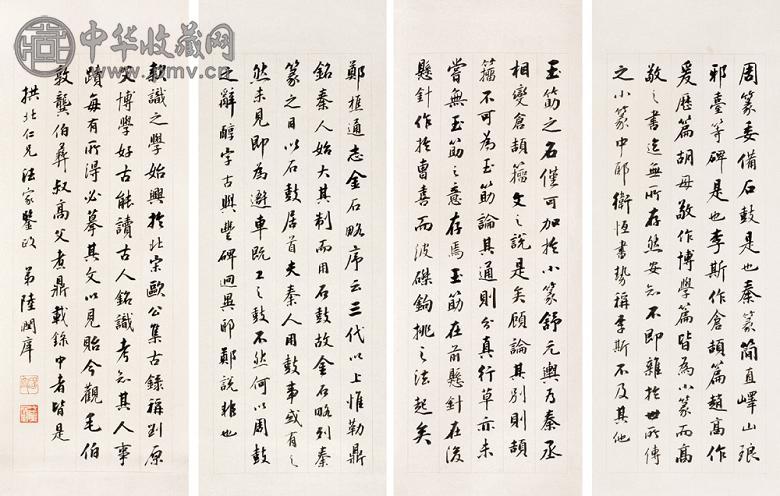 周篆委備石鼓是也秦篆簡直嶧山琅
邪臺等碑是也李斯作倉頡篇趙高作
爰歷篇胡毋敬作博學篇皆為小篆而高
敬之書迄無所存然安知不即雜於世所傳
之小篆中耶衛恆書勢稱李斯不及其他
玉筯之名僅可加於小篆舒元輿乃秦丞
相變倉頡籀文之說是矣顧論其別則頡
籀不可為玉筯論其通則分真行草亦未
嘗無玉筯之意存焉玉筯在前懸針在後
懸針作於曹喜而波磔鉤挑之法起矣
鄭樵通志金石略序云三代以上惟勒鼎
銘秦人始大其制而用石鼓故金石略列秦
篆之目以石鼓居首夫秦人用鼓事或有之
然未見即為避車既工之鼓不然何以周鼓
之辭醇字古與豐碑迥異耶鄭說非也
款識之學始興於北宋歐公集古錄稱劉原
父博學好古能讀古人銘識考知其人事
蹟每有所得必摹其文以見貽今觀毛伯
敦龔伯彝叔高父煮鼎載錄中者皆是
拱北仁兄法家鑒政 弟陸潤庠
中华收藏网
www.sczmv.cn